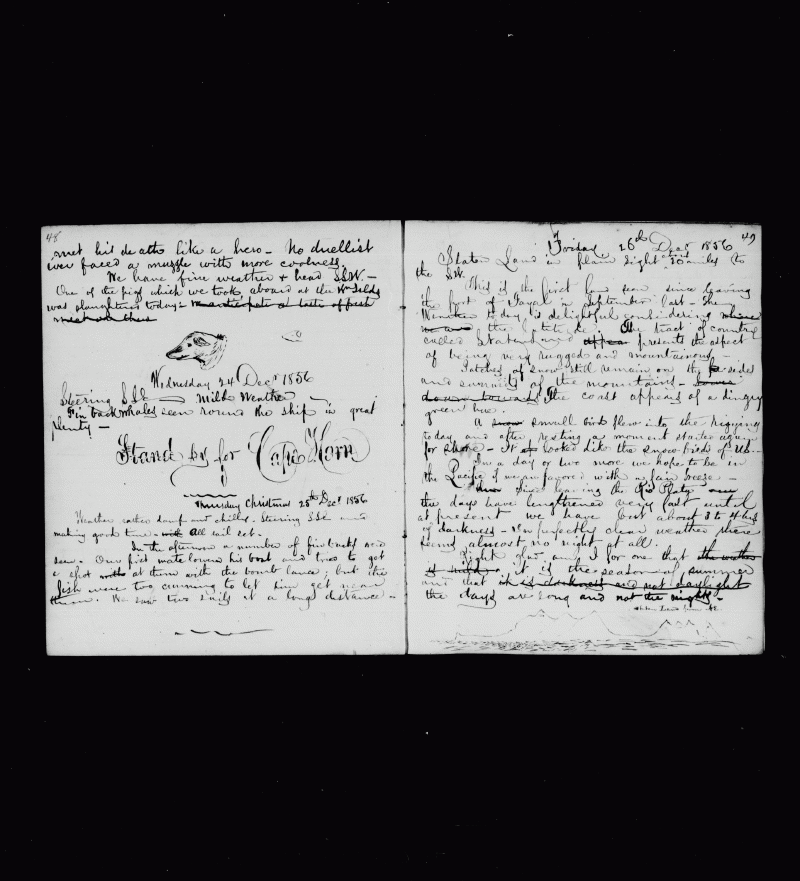 48
met his death like a hero - No duellist
ever faced a muzzle with more coolness.
We have fine weather & head S.S.W. -
One of the pigs which we took aboard at the W. Islds
was slaughtered today - We anticipate a taste of fresh
meat
Wednesday 24 Decr 1856
Steering S.S.E - Mild Weather -
Fin back whales seen round the ship in great
plenty -
Stand by for Cape Horn
Thursday Christmas 25th Decr 1856
Weather rather damp and chilly. Steering S.S.E. and
making good time - with all sail set.
In the afternoon a number of finbacks were
seen. Our first mate lowered his boat and tried to get
a shot with at them with the bomb lance; but the
fish were too cunning to let him get near
them. We saw two sails at a long distance -
49
Friday 26th Decr 1856
Staten Land in plain sight 30 miles to
the S.W.
This is the first land seen since leaving
the port of Fayal in September last - The
Weather today is delightful considering where
we are the latitude. The tract of country
called Statenland appea presents the aspect
of being very rugged and mountainous -
Patches of snow still remain on the sides
and summits of the mountains -
down towards The coast appears of a dingy
green hue.
A snow small bird flew into the rigging
today and after resting a moment started again
for shore - It looked like the snow birds of U.S. -
In a day or two more we hope to be in
the Pacific if we are favored with a fair breeze -
Since leaving the Rio Plata
the days have lengthened very fast until
at present we have but about 3 to 4 hrs
of darkness - In perfectly clear weather there
seems almost no night at all.
Right glad am I for one that the weather
is mild it is the season of summer
and that it is darkness and not daylight
the days are long and not the nights -